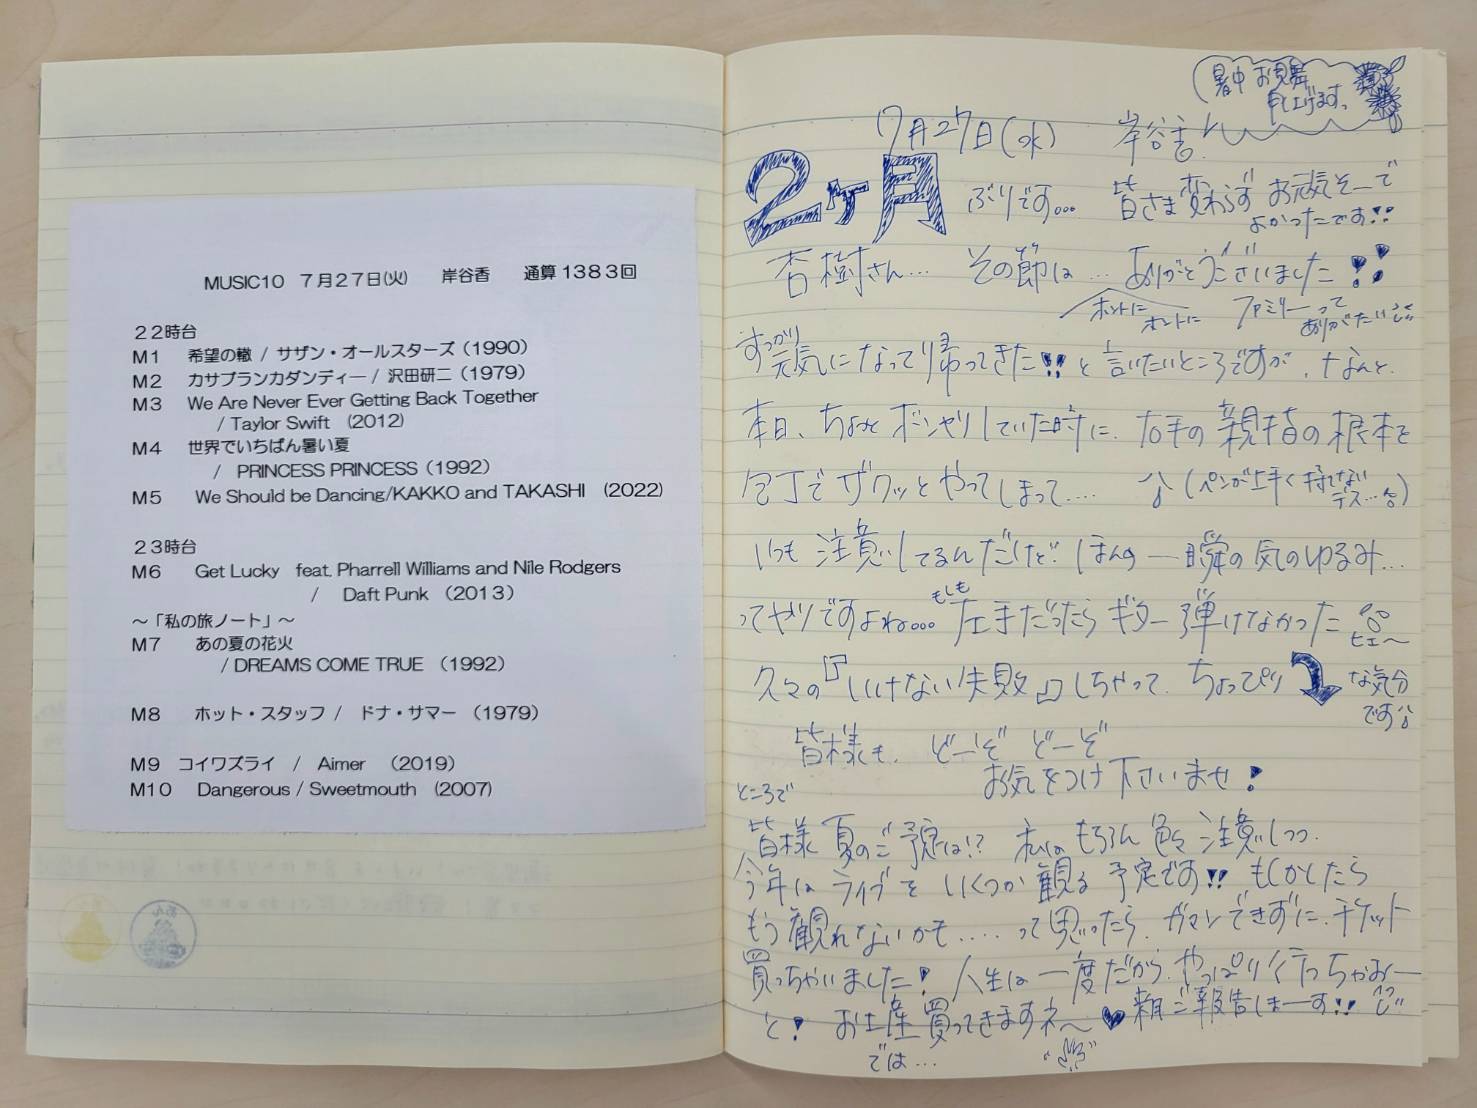 MUSIC10 7月27日(火) 岸谷香 通算1383回
22時台
M1 希望の轍 / サザン・オールスターズ (1990)
M2 カサブランカダンディー / 沢田研二 (1979)
M3 We Are Never Ever Getting Back Together
/ Taylor Swift (2012)
M4 世界でいちばん暑い夏
/ PRINCESS PRINCESS (1992)
M5 We Should be Dancing/KAKKO and TAKASHI (2022)
23時台
M6 Get Lucky feat. Pharrell Williams and Nile Rodgers
/ Daft Punk (2013)
~「私の旅ノート」~
M7 あの夏の花火
/ DREAMS COME TRUE (1992)
M8 ホット・スタッフ / ドナ・サマー (1979)
M9 コイワズライ / Aimer (2019)
M10 Dangerous / Sweetmouth (2007)
暑中お見舞
申し上げます。
7月27日(水) 岸谷香!
2ヶ月ぶりです... 皆さま変わらずお元気そーで
よかったです!!
杏樹さん... その節は... ありがとうございました!!
ホントに
ホントに
ファミリーって
ありがたい
すっかり
元気になって帰ってきた!!と言いたいところですが、なんと、
本日、ちょっとボンヤリしていた時に、右手の親指の根本を
包丁でザクッとやってしまって.... (ペンが上手く持てない
デス...)
いつも注意してるんだけど、ほんの一瞬の気のゆるみ...
ってヤツですよね... もしも左手だったらギター弾けなかった
ヒェ~
久々の『いけない失敗』しちゃって、ちょっぴり な気分
です
皆様も、どーぞどーぞ
お気をつけ下さいませ!
ところで
皆様夏のご予定は!? 私はもちろん色々注意しつつ、
今年はライブをいくつか観る予定です!! もしかしたら
もう観れないかも.....って思ったら、ガマンできずに、チケット
買っちゃいました! 人生は一度だから、やっぱり行っちゃおー
と! お土産買ってきますネ~♥ 来月ご報告しまーす!!
では...